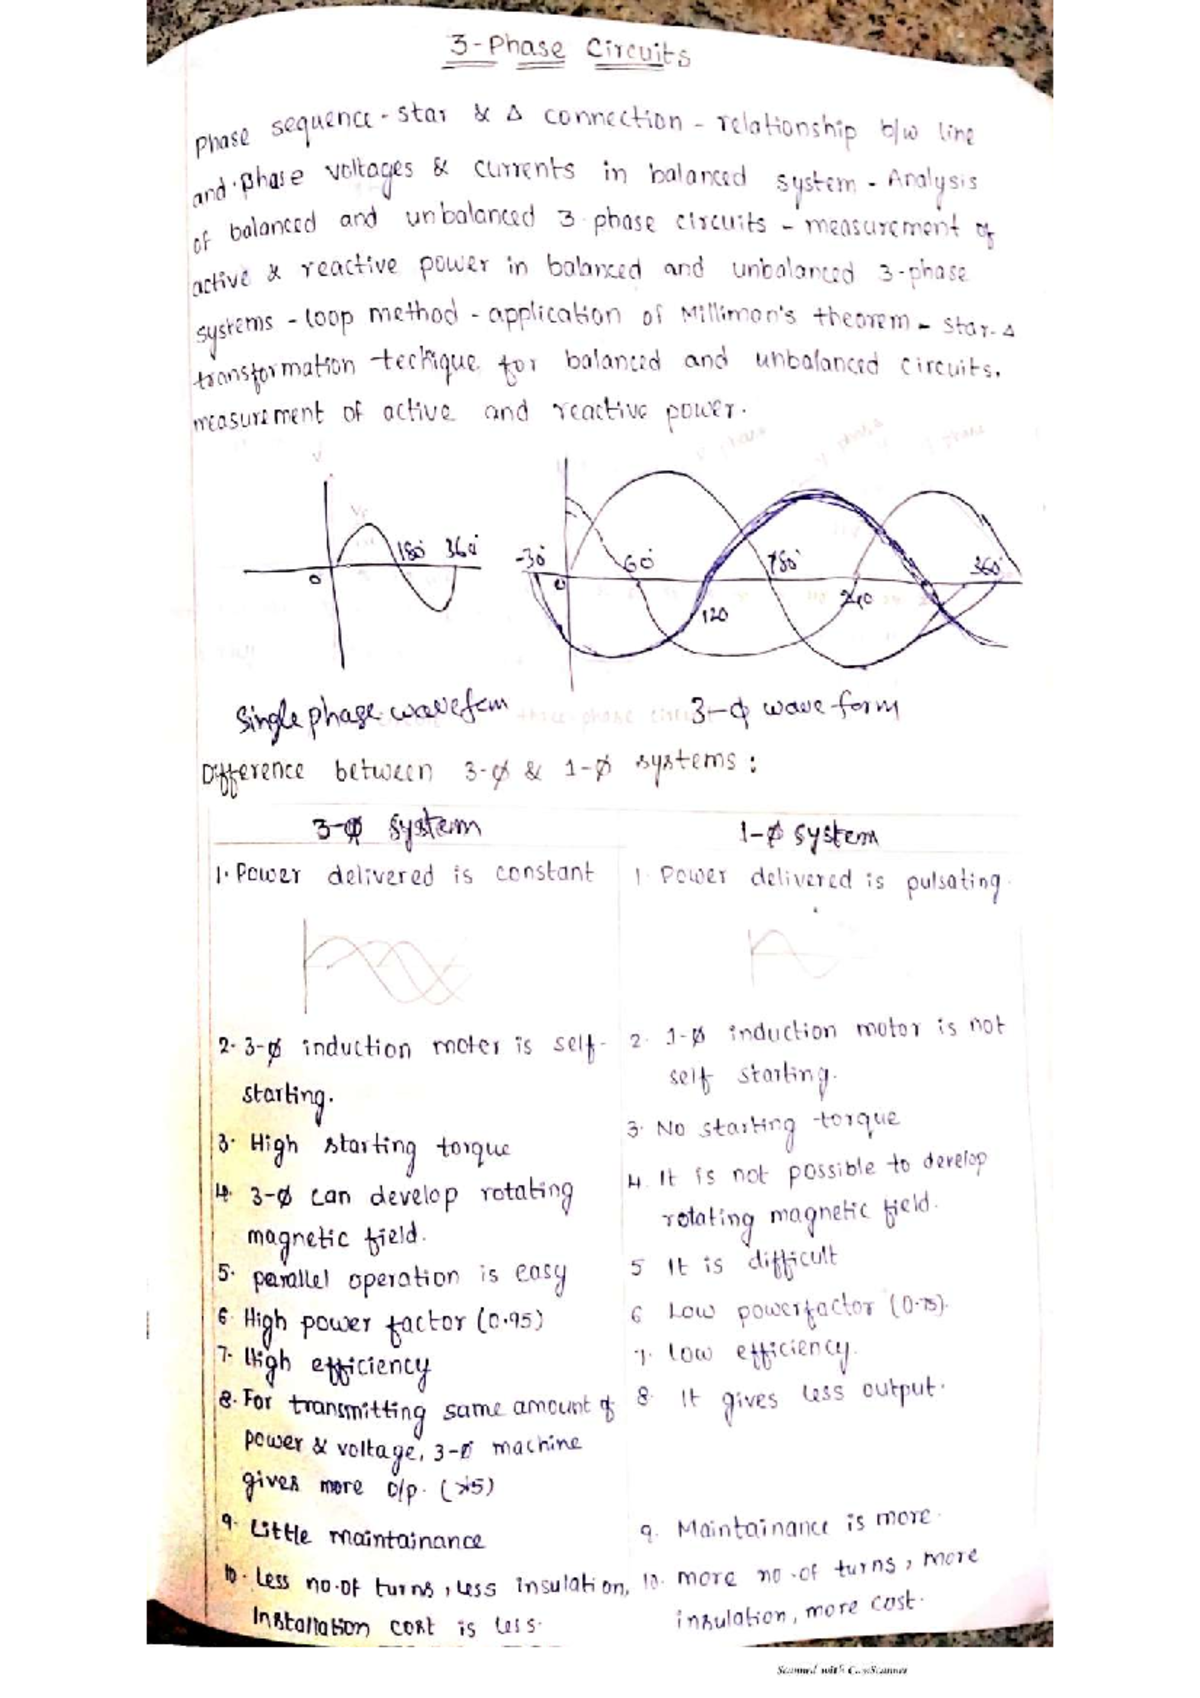 3-Phase Circuits
Phase sequence - star & Δ connection - relationship b/w line
and phase voltages & currents in balanced system - Analysis
of balanced and unbalanced 3-phase circuits - measurement of
active & reactive power in balanced and unbalanced 3-phase
systems - loop method - application of Milliman's theorem - star-Δ
transformation techique for balanced and unbalanced circuits.
measurement of active and reactive power.
0 180° 360°
-30° 0 60° 120 180° 240 360°
Single phase wavefom 3-ϕ wave form
Difference between 3-ϕ & 1-ϕ systems:
3-ϕ system 1-ϕ system
1. Power delivered is constant 1. Power delivered is pulsating.
2. 3-ϕ induction moter is self- 2. 1-ϕ induction motor is not
starting. self starting.
3. High starting torque 3. No starting torque
4. 3-ϕ can develop rotating 4. It is not possible to develop
magnetic field. rotating magnetic field.
5. parallel operation is easy 5 It is difficult
6. High power factor (0.95) 6 Low powerfactor (0.75).
7. High efficiency 7. low efficiency.
8. For transmitting same amount of 8. It gives less output.
power & voltage, 3-ϕ machine
gives more o/p.
9. Little maintainance 9. Maintainance is more.
10. Less no.of turns, less insulation, 10. more no.of turns, more
Installation cost is less. insulation, more cost.
Scanned with CamScanner